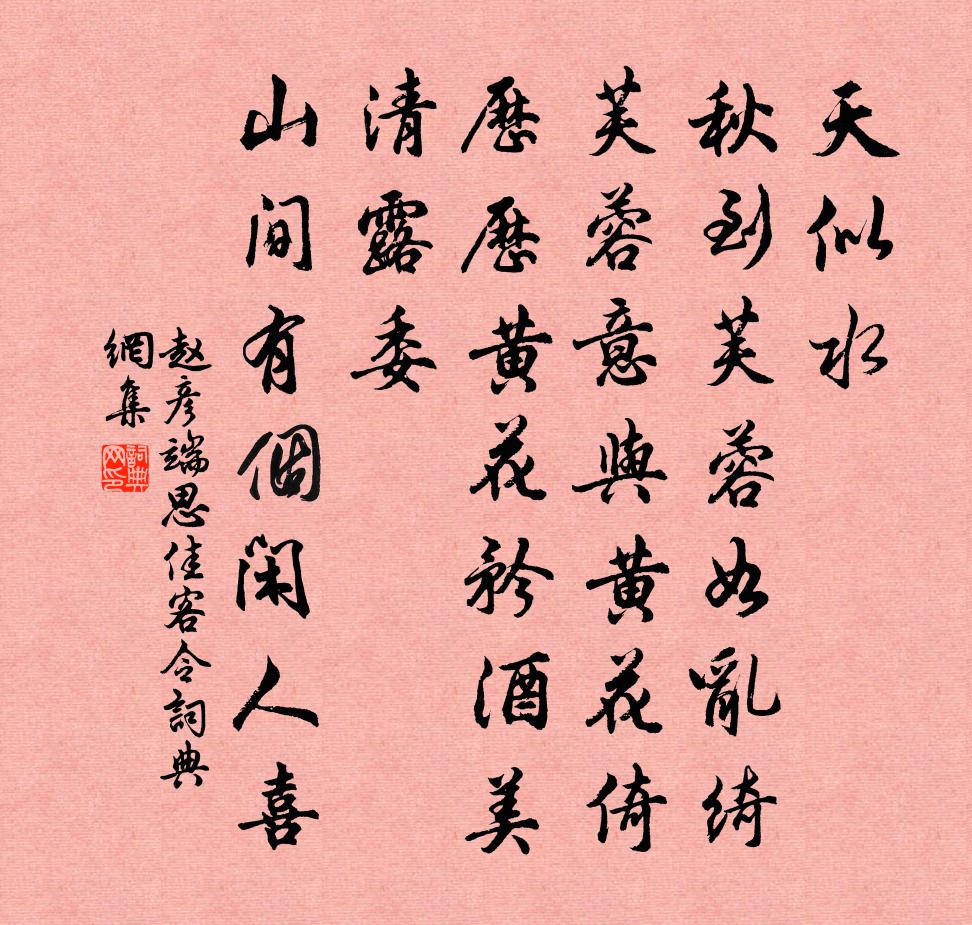 天似水
秋到芙蓉如亂綺
芙蓉意與黃花倚
歷歷黃花矜酒美
清露委
山間有個閑人喜
赵彥端思佳客令詞典
網集
詞典網印